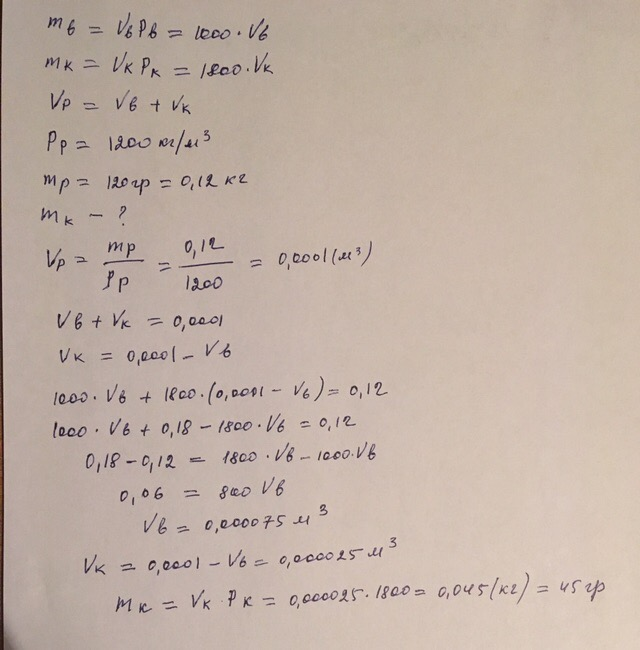 mв = VвPв = 1000·Vв
mк = VкPк = 1800·Vк
Vр = Vв + Vк
Pр = 1200 кг/м³
mр = 120гр = 0,12 кг
mк - ?
Vр = mр/Pр = 0,12/1200 = 0,0001 (м³)
Vв + Vк = 0,0001
Vк = 0,0001 - Vв
1000·Vв + 1800·(0,0001 - Vв) = 0,12
1000·Vв + 0,18 - 1800·Vв = 0,12
0,18 - 0,12 = 1800·Vв - 1000·Vв
0,06 = 800 Vв
Vв = 0,000075 м³
Vк = 0,0001 - Vв = 0,000025 м³
mк = Vк·Pк = 0,000025·1800 = 0,045 (кг) = 45 гр